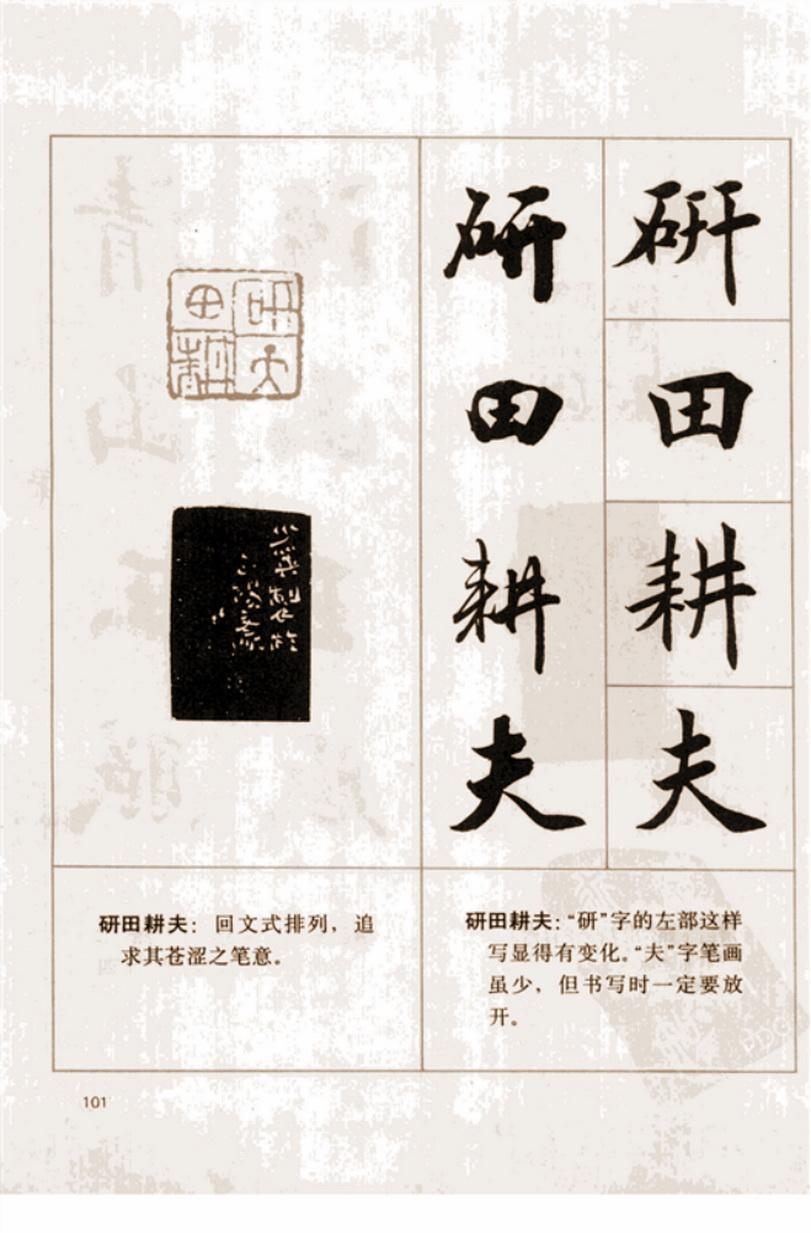 研
田
耕
夫
研
田
耕
夫
研
夫
田
耕
研田耕夫：回文式排列，追
求其苍涩之笔意。
研田耕夫：“研”字的左部这样
写显得有变化。“夫”字笔画
虽少，但书写时一定要放
开。
101